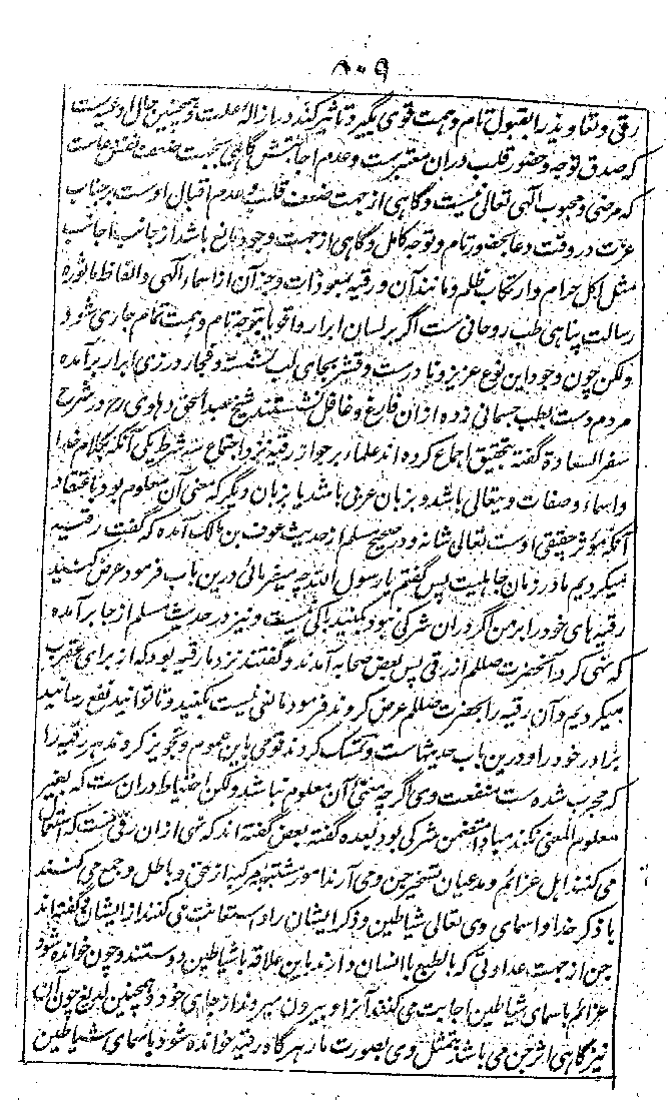 ۸۰۹
رقی و تعاویذ را بقبول تام و همت قوی بگیرد تاثیر کند در ازالۀ علت و همچنین حال دعیه است
که صدق توجه و حضور قلب دران معتبرست و عدم اجابتش گاهی بجهت ضعف نفس دعاست
که مرضی و محبوب الهی تعالی نیست و گاهی از جهت ضعف قلب و عدم اقبال اوست بر جناب
عزت در وقت دعا بحضور تام و توجه کامل و گاهی از جهت وجود مانع باشد از جانب اجابت
مثل اکل حرام و ارتکاب ظلم و مانند آن و رقیه بمعوذات و جز آن از اسماء الهی و الفاظ ماثوره
رسالت پناهی طب روحانی ست اگر بر لسان ابرار و اتقیا بتوجه تام و همت تمام جاری شود
ولکن چون وجود این نوع عزیز و نادرست و قشر بجای لب نشسته و فجار در زی ابرار بر آمده
مردم دست بطب جسمانی زده ازان فارغ و غافل نشستند شیخ عبدالحق دهلوی رح در شرح
سفر السعادة گفته بتحقیق اجماع کرده اند علما بر جواز رقیه نزد اجتماع سه شرط یکی آنکه بکلام خدا
و اسماء و صفات وی تعالی باشد و بزبان عربی باشد یا بزبان دیگر که معنی آن معلوم بود با اعتقاد
آنکه مؤثر حقیقی اوست تعالی شانه و در صحیح مسلم از حدیث عوف بن مالک آمده که گفت رقیه
میکردیم ما در زمان جاهلیت پس گفتم یا رسول الله چه میفرمائی درین باب فرمود عرض کنید
رقیه های خود را بر من اگر دران شرکی نبود بکنید باکی نیست و نیز در حدیث مسلم از جابر آمده
که نهی کرد آنحضرت صلعم از رقی پس بعض صحابه آمدند و گفتند نزد ما رقیه بود که از برای عقرب
میکردیم و آن رقیه را بحضرت صلعم عرض کردند فرمود مانعی نیست بکنید و تا توانید نفع رسانید
برادر خود را و درین باب حدیثهاست و تمسک کردند قومی باین عموم و تجویز کردند هر رقیه را
که مجرب شده ست منفعت وی اگرچه معنی آن معلوم نباشد ولکن احتیاط دران ست که بغیر
معلوم المعنی نکند مبادا متضمن شرکی بود بعده گفته بعض گفته اند که نهی ازان رقی ست که استعمال
می کنند اهل عزائم و مدعیان تسخیر جن و می آرند امور مشتبه مرکبه از حق و باطل و جمع می کنند
با ذکر خدا و اسمای وی تعالی شیاطین و ذکر ایشان را و استعانت می کنند از ایشان و گفته اند
جن از جهت عداوتی که بالطبع با انسان دارند باین علاقه با شیاطین دوستند و چون خوانده شود
عزائم باسمای شیاطین اجابت می کنند آنرا و بیرون میروند از جای خود و همچنین لدیغ چون آن
نیز گاهی اثر جن می باشد بتمثل وی بصورت مار هرگاه رقیه خوانده شود باسمای شیاطین